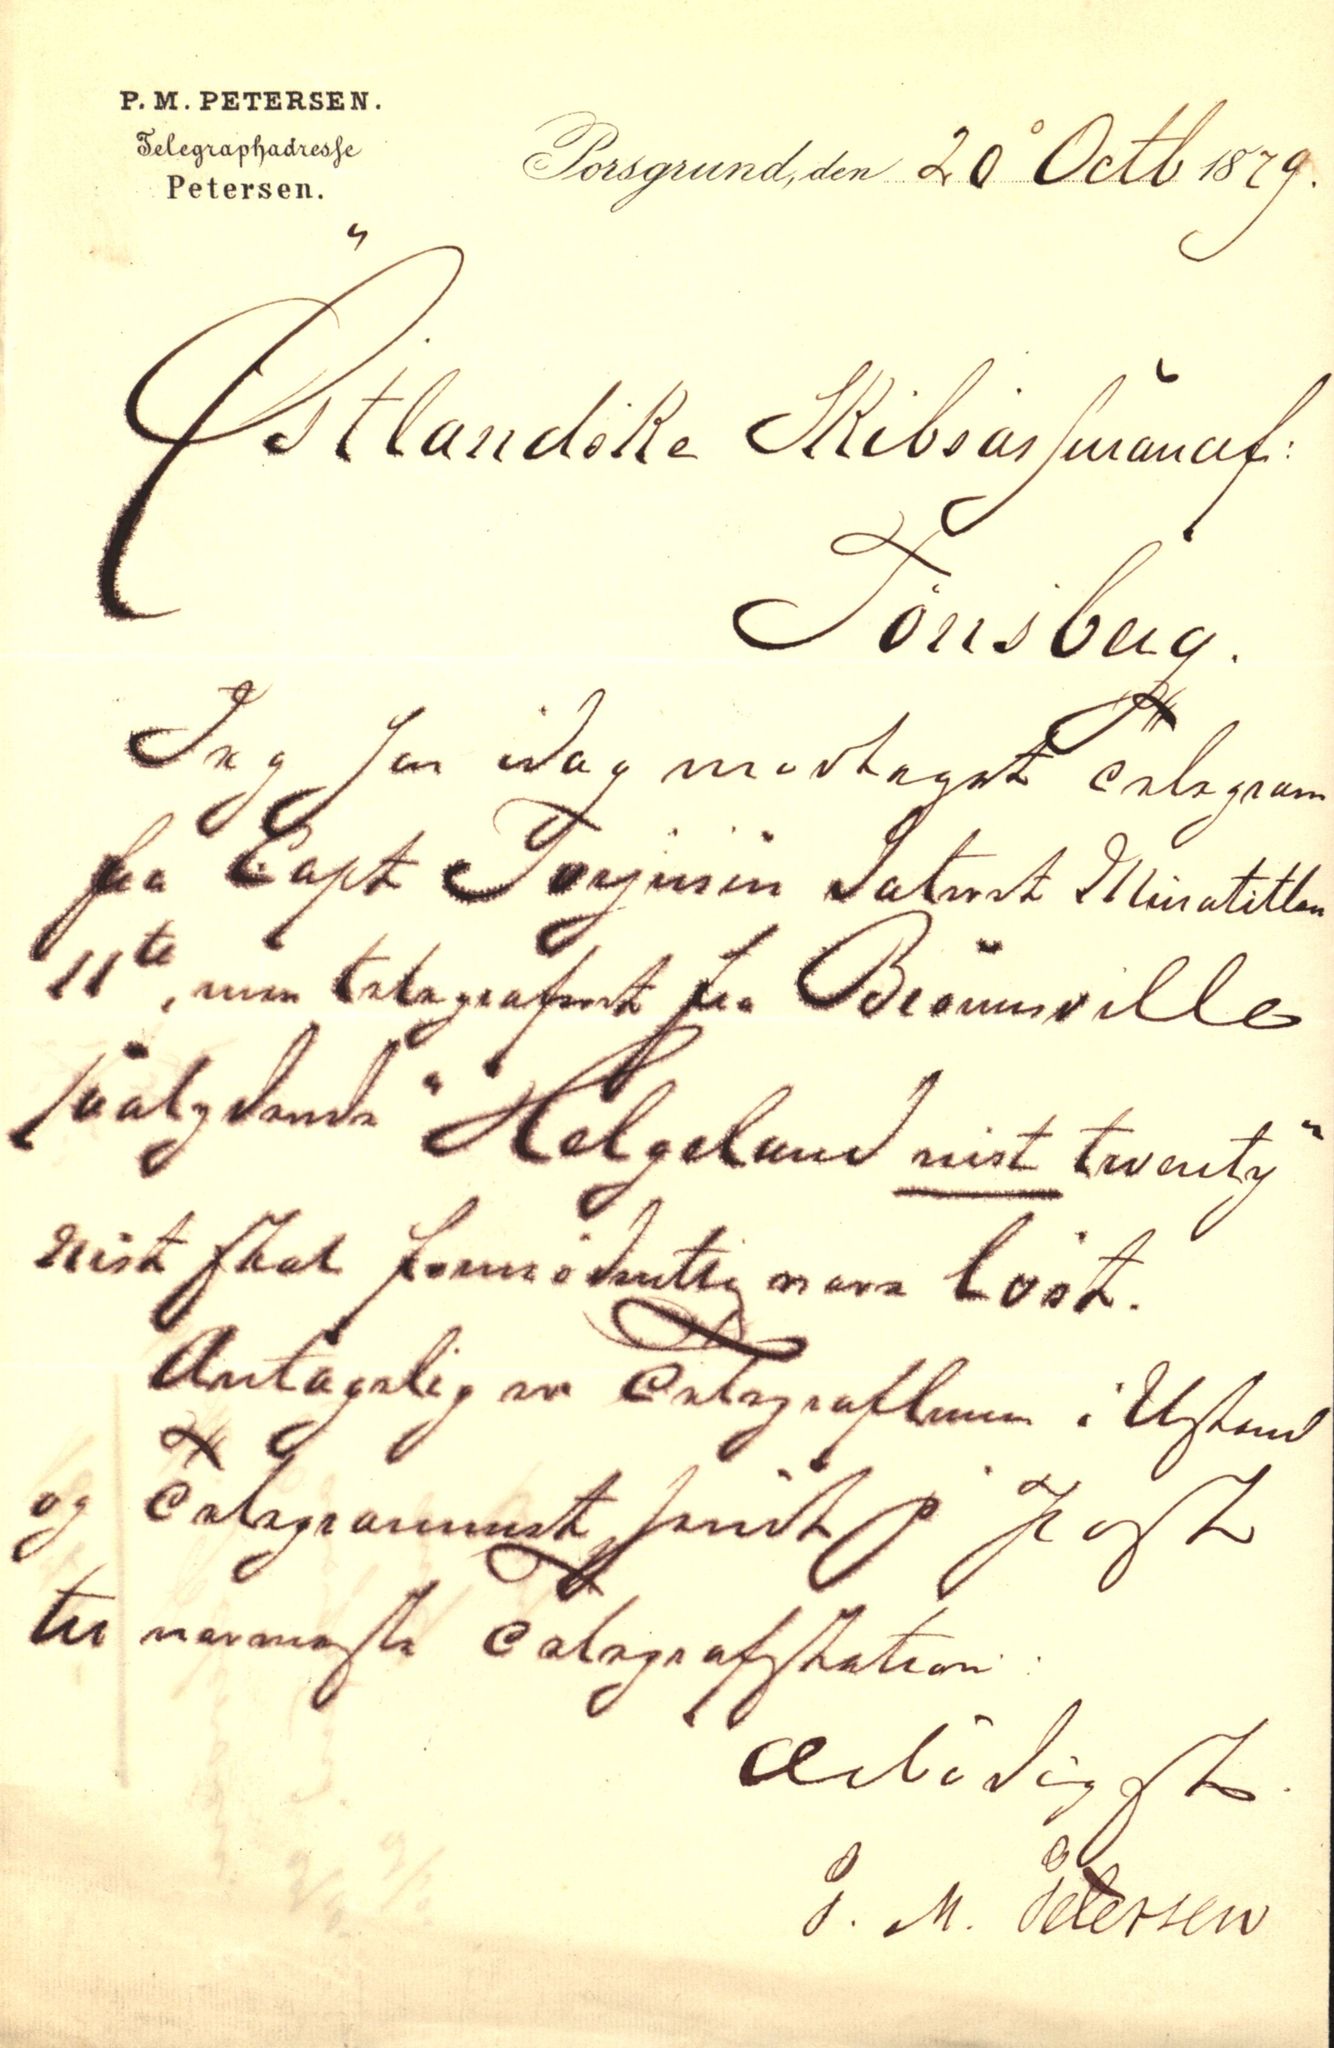 P. M. PETERSEN.
Telegraphadresse
Petersen.
Porsgrund, den 20 Octb 1879.
Østlandske Skibsassurancef:
Tönsberg.
Jeg har idag modtaget Telegram
fra Capt Torjusen dateret Minatitlan
11te, men telegraferet fra Brownsville
saalydende "Helgeland nist twenty"
nist skal formodentlig være lost.
Antagelig er Telegraflinien i Ustand
og Telegrammet sendt p Post
til nærmeste Telegrafstation.
Ærbödigst
P. M. Petersen